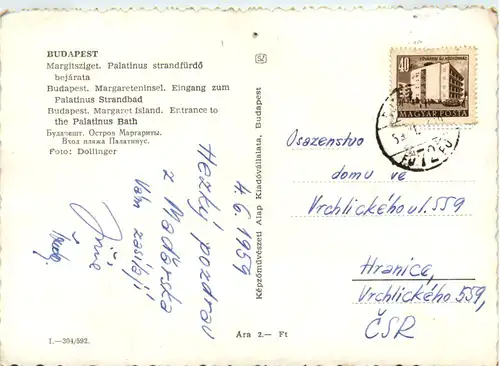 BUDAPEST
Margitsziget. Palatinus strandfürdő
bejárata
Budapest. Margareteninsel. Eingang zum
Palatinus Strandbad
Budapest. Margaret Island. Entrance to
the Palatinus Bath
Будапешт. Остров Маргариты.
Вход пляжа Палатинус.
Foto: Dollinger
4.6.1959
Hezký pozdrav
z Maďarska
Vám zasílají
Jiře
I.—304/592.
Ára 2.— Ft
Képzőművészeti Alap Kiadóvállalata, Budapest
40
MAGYAR POSTA
Osazenstvo
domu ve
Vrchlického ul. 559
Hranice,
Vrchlického 559,
ČSR